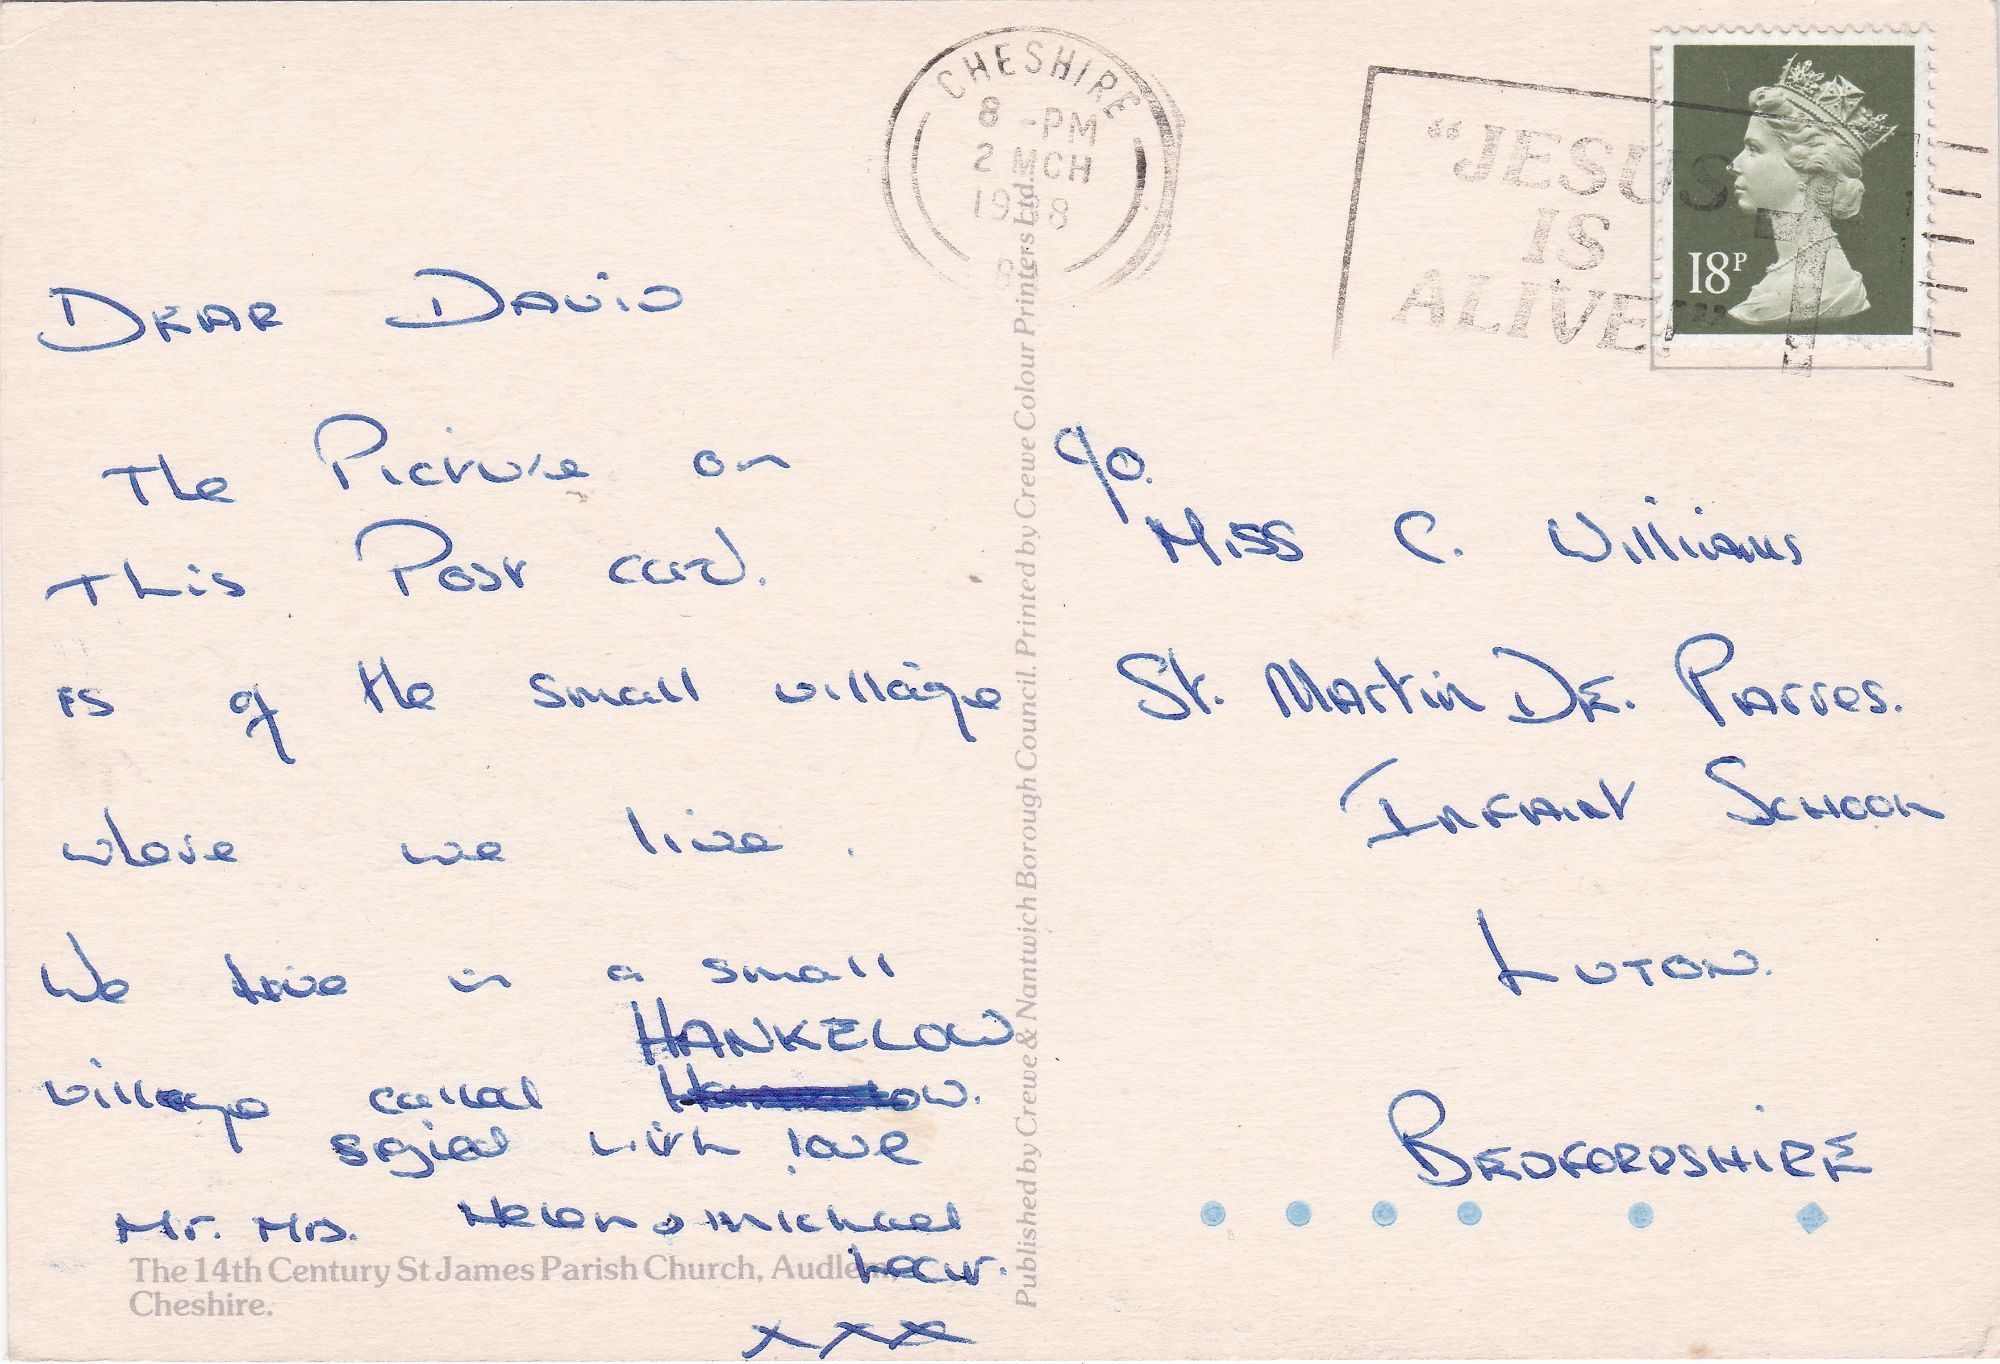 CHESHIRE
8 - PM
2 MCH
19 8
"JESUS
IS
ALIVE!"
18P
DEAR DAVID
The Picture on
This Post card.
is of the small village
where we live.
We live in a small
HANKELOW
village called
signed with love
Mr. Mrs. Helen & Michael
XXX
c/o.
Miss C. Williams
St. Martin DE. Parres.
INFANT SCHOOL
LUTON.
BEDFORDSHIRE
The 14th Century St James Parish Church, Audlem,
Cheshire.
Published by Crewe & Nantwich Borough Council. Printed by Crewe Colour Printers Ltd.